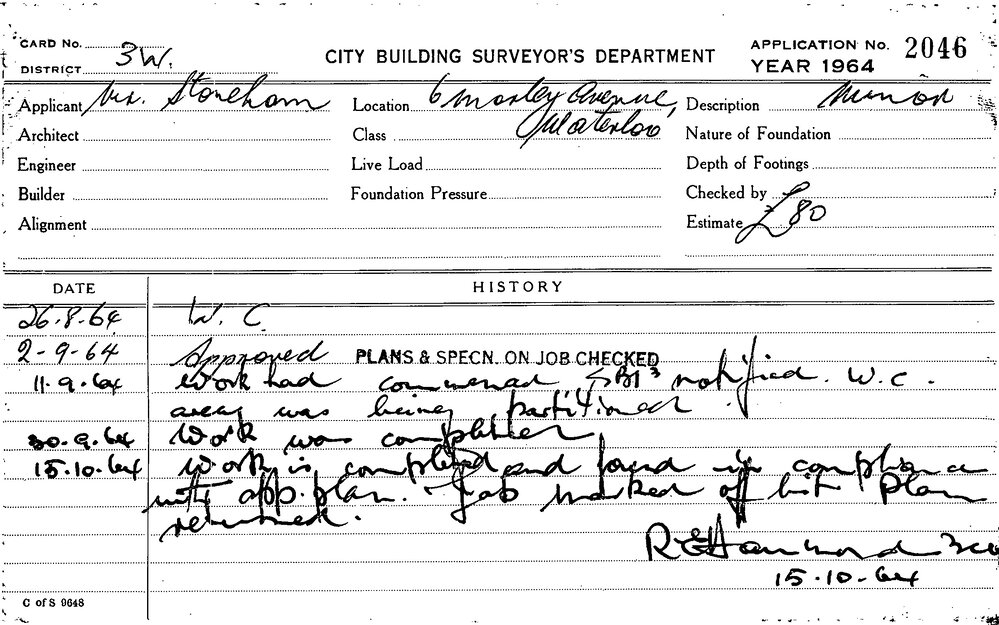 CARD No.
DISTRICT 3W.
CITY BUILDING SURVEYOR'S DEPARTMENT
APPLICATION No. 2046
YEAR 1964
Applicant Mr. Stoneham Location 6 Morley Avenue, Description Minor
Architect Class Waterloo Nature of Foundation
Engineer Live Load Depth of Footings
Builder Foundation Pressure Checked by
Alignment Estimate £80
DATE HISTORY
26.8.64 W.C.
2-9-64 Approved PLANS & SPECN. ON JOB CHECKED
11.9.64 Work had commenced notified. W.C.
area was being partitioned
30.9.64 Work was completed
15.10.64 Work is completed and found in compliance
with app. plan. Job marked off list Plan
returned.
R E Hammond 3W
15.10.64
C of S 9648